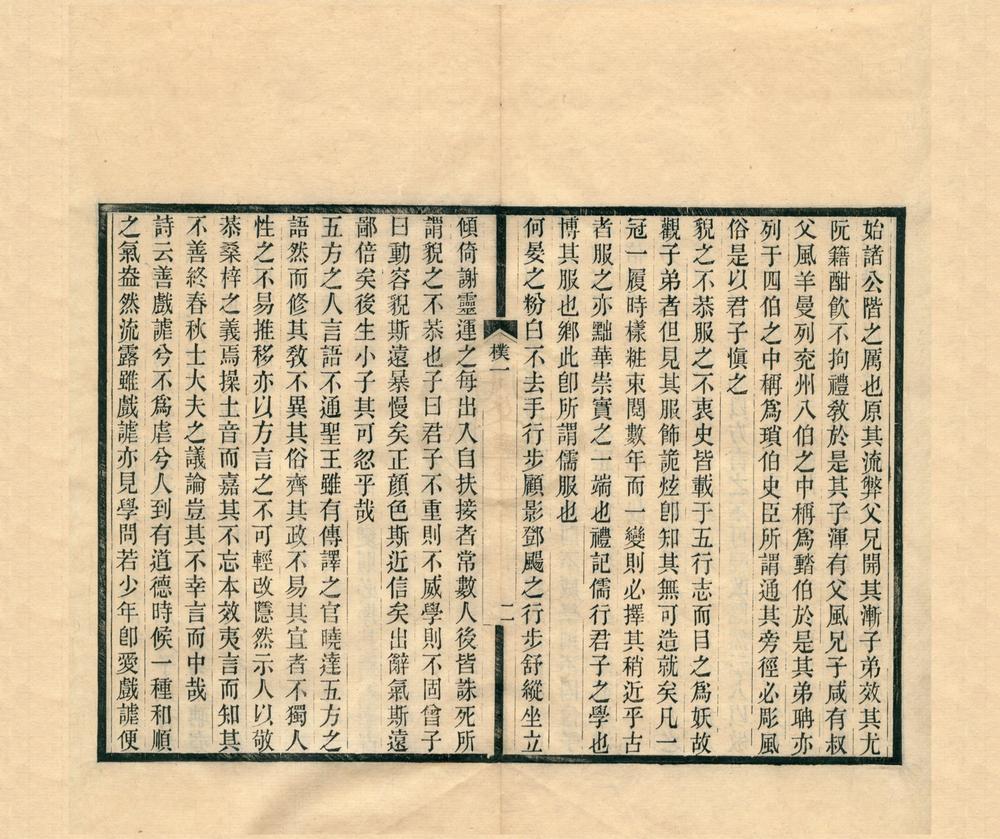 始諸公階之厲也原其流弊父兄開其漸子弟效其尤
阮籍酣飲不拘禮敎於是其子渾有父風兄子咸有叔
父風羊曼列兖州八伯之中稱爲䵬伯於是其弟聃亦
列于四伯之中稱爲瑣伯史臣所謂通其旁徑必彫風
俗是以君子愼之
貌之不恭服之不衷史皆載于五行志而目之爲妖故
觀子弟者但見其服飾詭炫卽知其無可造就矣凡一
冠一履時樣粧束閱數年而一變則必擇其稍近乎古
者服之亦黜華崇實之一端也禮記儒行君子之學也
博其服也鄉此卽所謂儒服也
何晏之粉白不去手行步顧影鄧颺之行步舒縱坐立
樸一
二
傾倚謝靈運之每出入自扶接者常數人後皆誅死所
謂貌之不恭也子曰君子不重則不威學則不固曾子
曰動容貌斯遠暴慢矣正顏色斯近信矣出辭氣斯遠
鄙倍矣後生小子其可忽乎哉
五方之人言語不通聖王雖有傳譯之官曉達五方之
語然而修其敎不異其俗齊其政不易其宜者不獨人
性之不易推移亦以方言之不可輕改隱然示人以敬
恭桑梓之義焉操土音而嘉其不忘本效夷言而知其
不善終春秋士大夫之議論豈其不幸言而中哉
詩云善戲謔兮不爲虐兮人到有道德時候一種和順
之氣盎然流露雖戲謔亦見學問若少年卽愛戲謔便